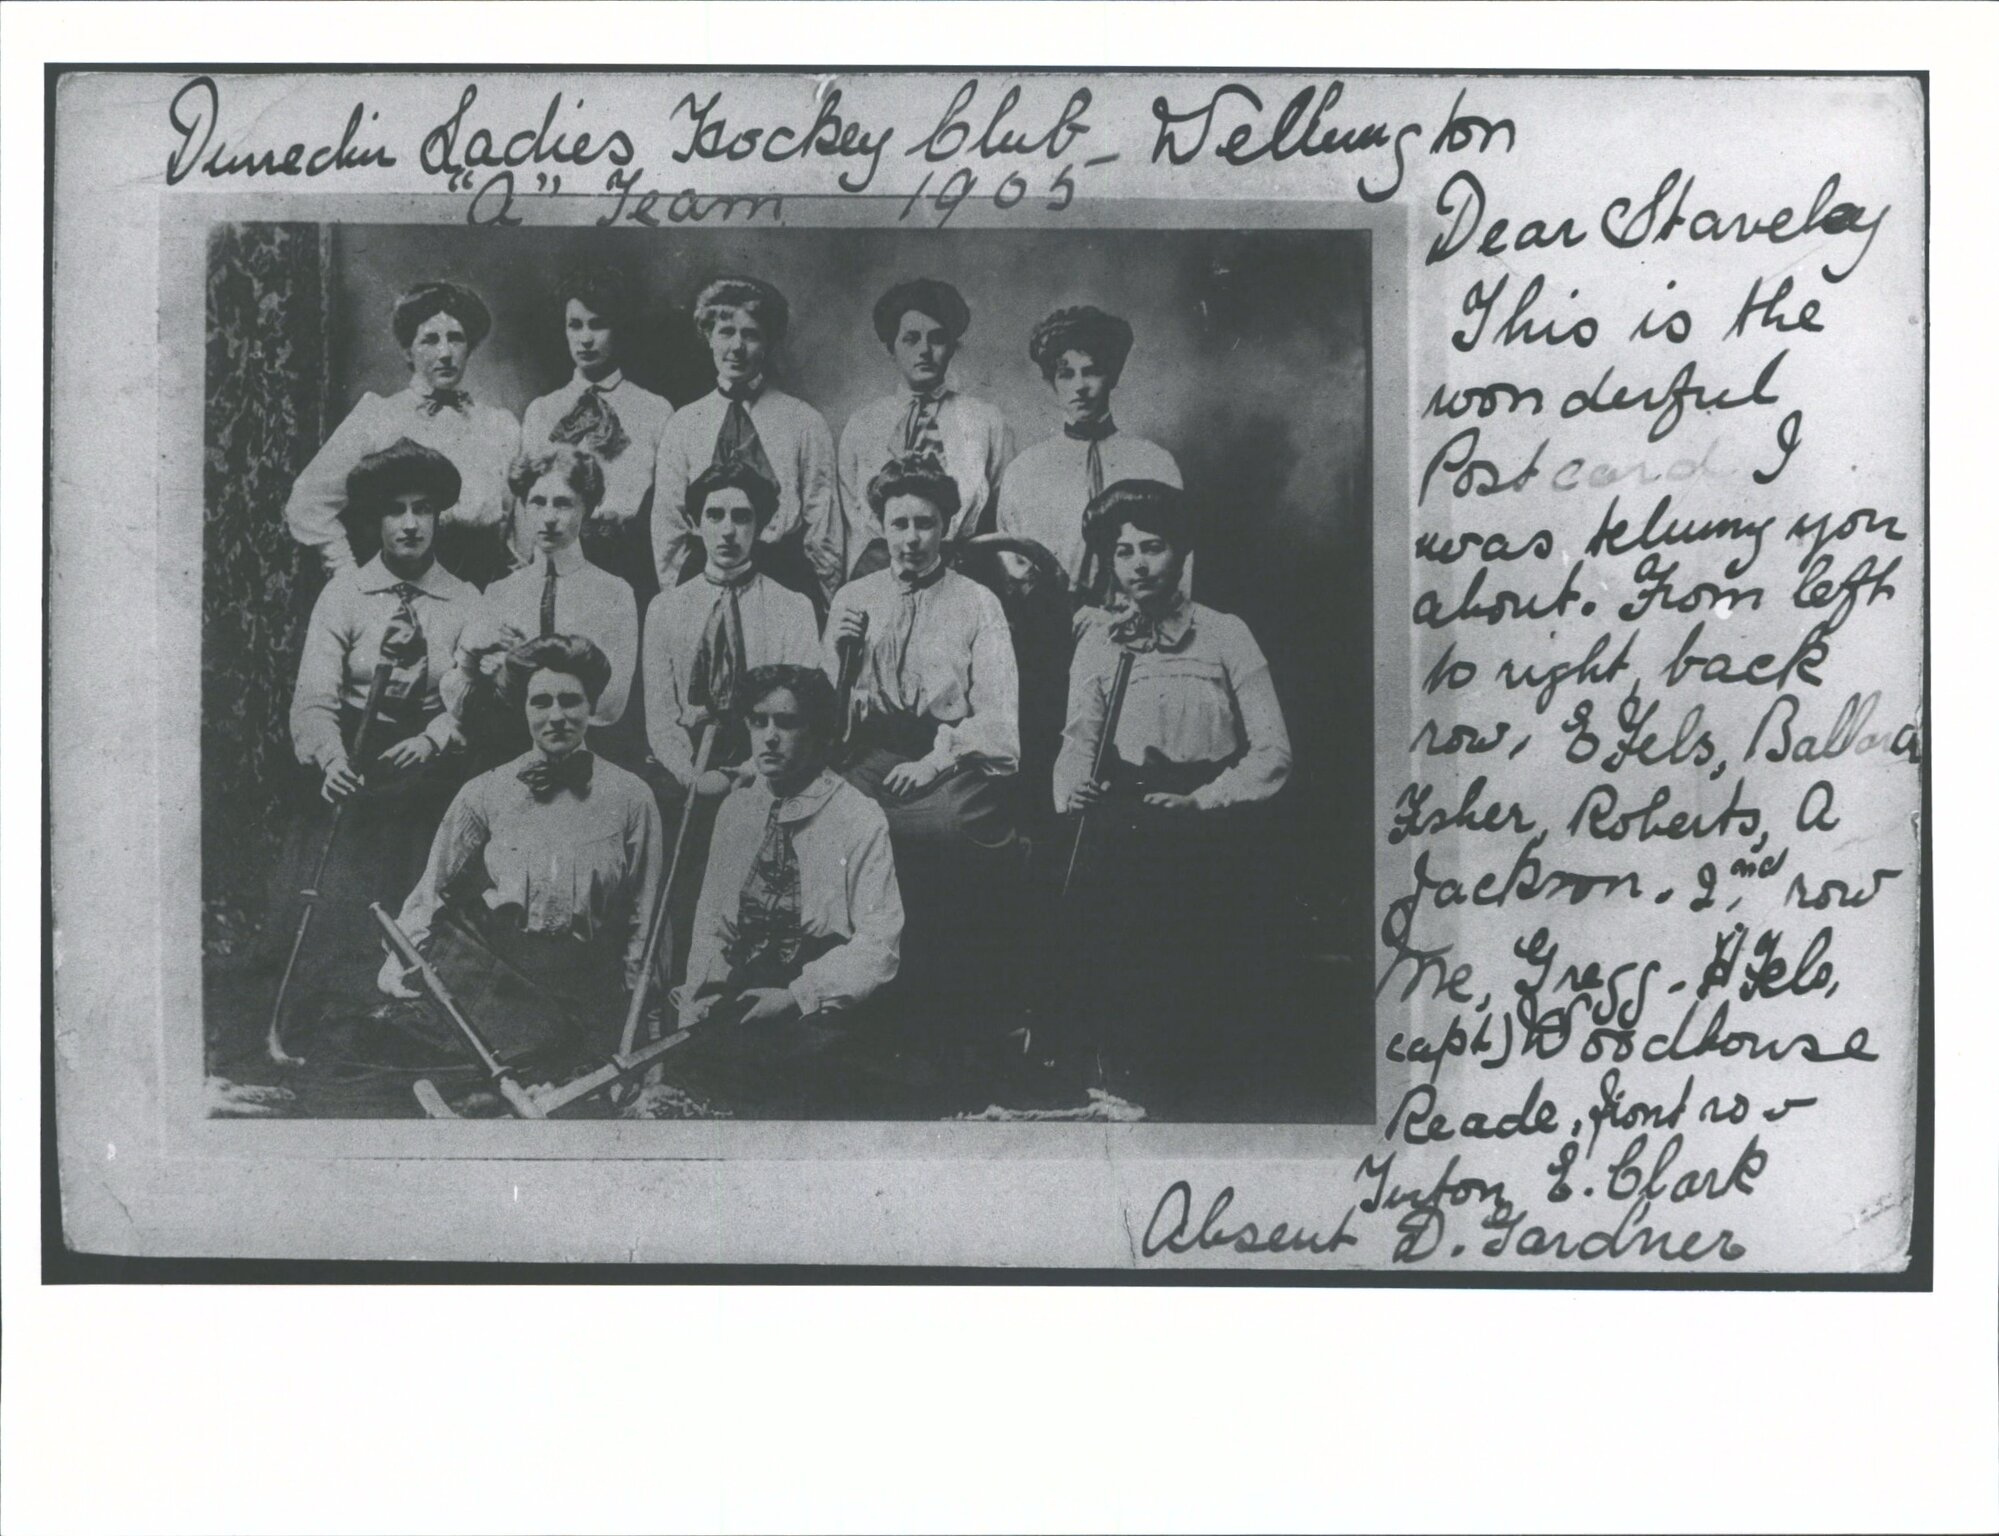 Dunedin Ladies Hockey Club - Wellington
"A" Team 1905
Dear Staveley
This is the
wonderful
Postcard I
was telling you
about. From left
to right, back
row, E Fels,
Fisher, Roberts, A
Jackson. 2nd row
Me, Gregg - Fels,
capt) Woodhouse
Reade, front row
E. Clark
Absent D. Gardner